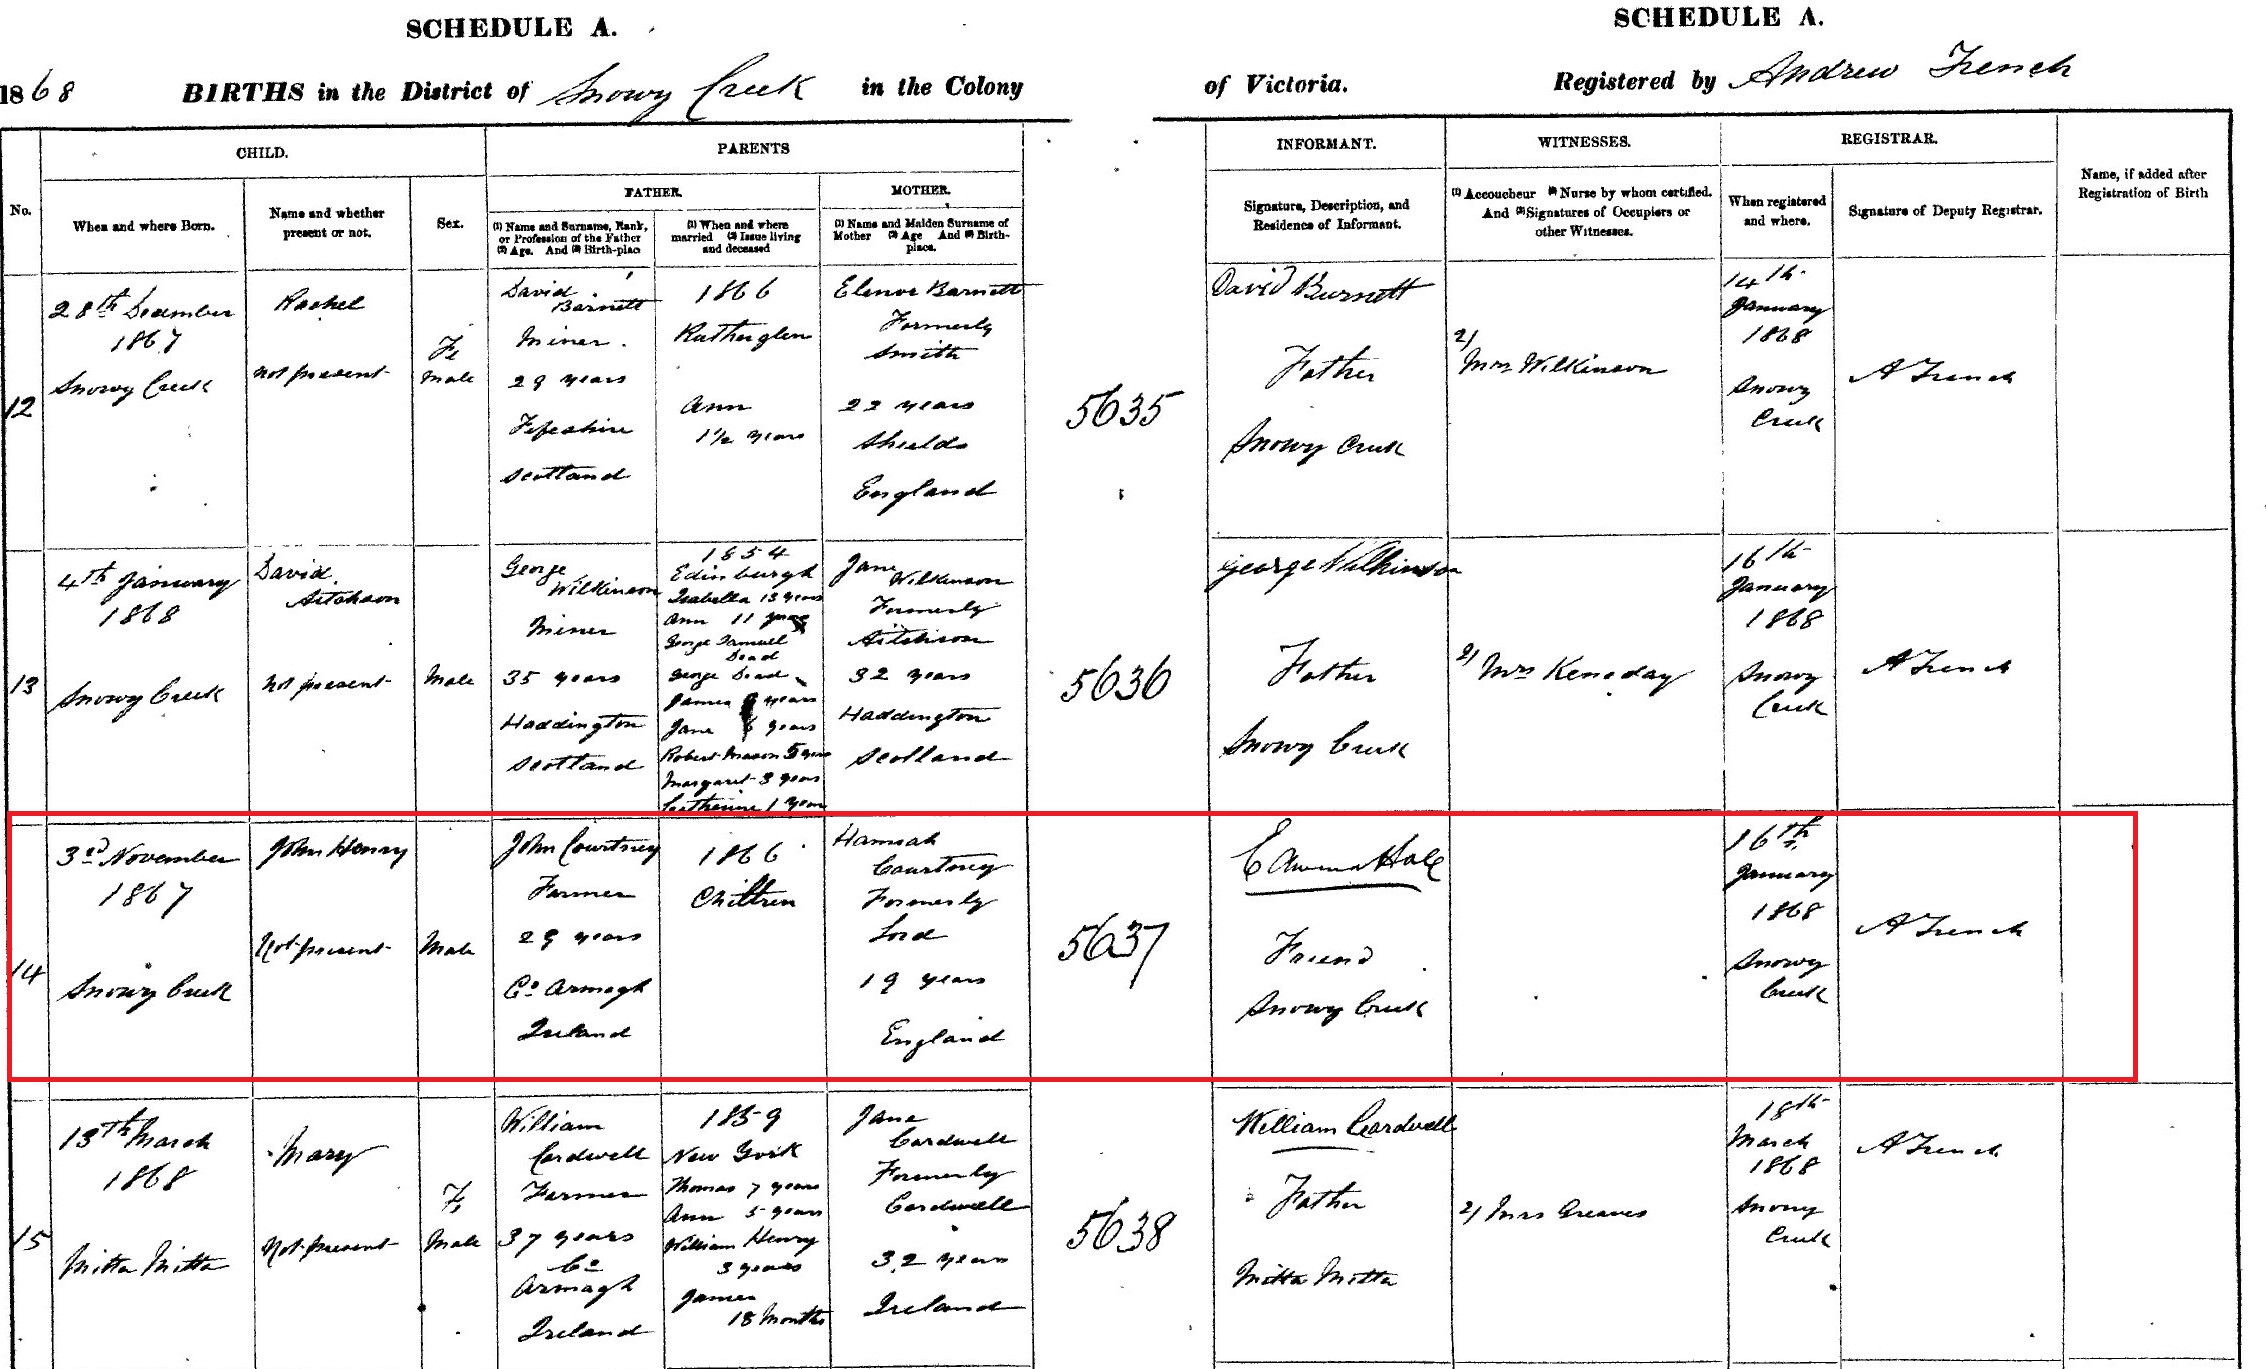 SCHEDULE A.
SCHEDULE A.
1868 BIRTHS in the District of Snowy Creek in the Colony of Victoria. Registered by Andrew French
CHILD.
PARENTS
INFORMANT.
WITNESSES.
REGISTRAR.
Name, if added after
Registration of Birth
FATHER.
MOTHER.
No.
When and where Born.
Name and whether
present or not.
Sex.
(1) Name and Surname, Rank,
or Profession of the Father
(2) Age. And (3) Birth-place
(1) When and where
married (2) Issue living
and deceased
(1) Name and Maiden Surname of
Mother (2) Age And (3) Birth-
place.
Signature, Description, and
Residence of Informant.
(1) Accoucheur (2) Nurse by whom certified.
And (3) Signatures of Occupiers or
other Witnesses.
When registered
and where.
Signature of Deputy Registrar.
12
28th December
1867
Snowy Creek
Rachel
not present
Fe
Male
David
Barnett
Miner.
29 years
Fifeshire
Scotland
1866
Rutherglen
Ann
1½ years
Elenor Barnett
Formerly
Smith
22 years
Shields
England
5635
David Burnett
Father
Snowy Creek
2/
Mrs Wilkinson
14th
January
1868
Snowy
Creek
A French
13
4th January
1868
Snowy Creek
David
Aitchson
not present
Male
George
Wilkinson
Miner
35 years
Haddington
Scotland
1854
Edinburgh
Isabella 13 years
Ann 11 years
George Samuell
Dead
George Dead
James years
Jane years
Robert Mason 5 years
Margaret 3 years
Catherine 1 year
Jane
Wilkinson
Formerly
Aitchison
32 years
Haddington
Scotland
5636
George Wilkinson
Father
Snowy Creek
2/ Mrs
16th
January
1868
Snowy
Creek
A French
14
3rd November
1867
Snowy Creek
John Henry
Not present
Male
John Courtney
Farmer
29 years
Co Armagh
Ireland
1866
Chiltren
Hannah
Courtney
Formerly
Lord
19 years
England
5637
Friend
Snowy Creek
16th
January
1868
Snowy
Creek
A French
15
13th March
1868
Mitta Mitta
Mary
Not present
Fe
Male
William
Cardwell
Farmer
37 years
Co
Armagh
Ireland
1859
New York
Thomas 7 years
Ann 5 years
William Henry
3 years
James
18 Months
Jane
Cardwell
Formerly
Cardwell
32 years
Ireland
5638
William Cardwell
Father
Mitta Mitta
2/ Mrs Greaves
18th
March
1868
Snowy
Creek
A French